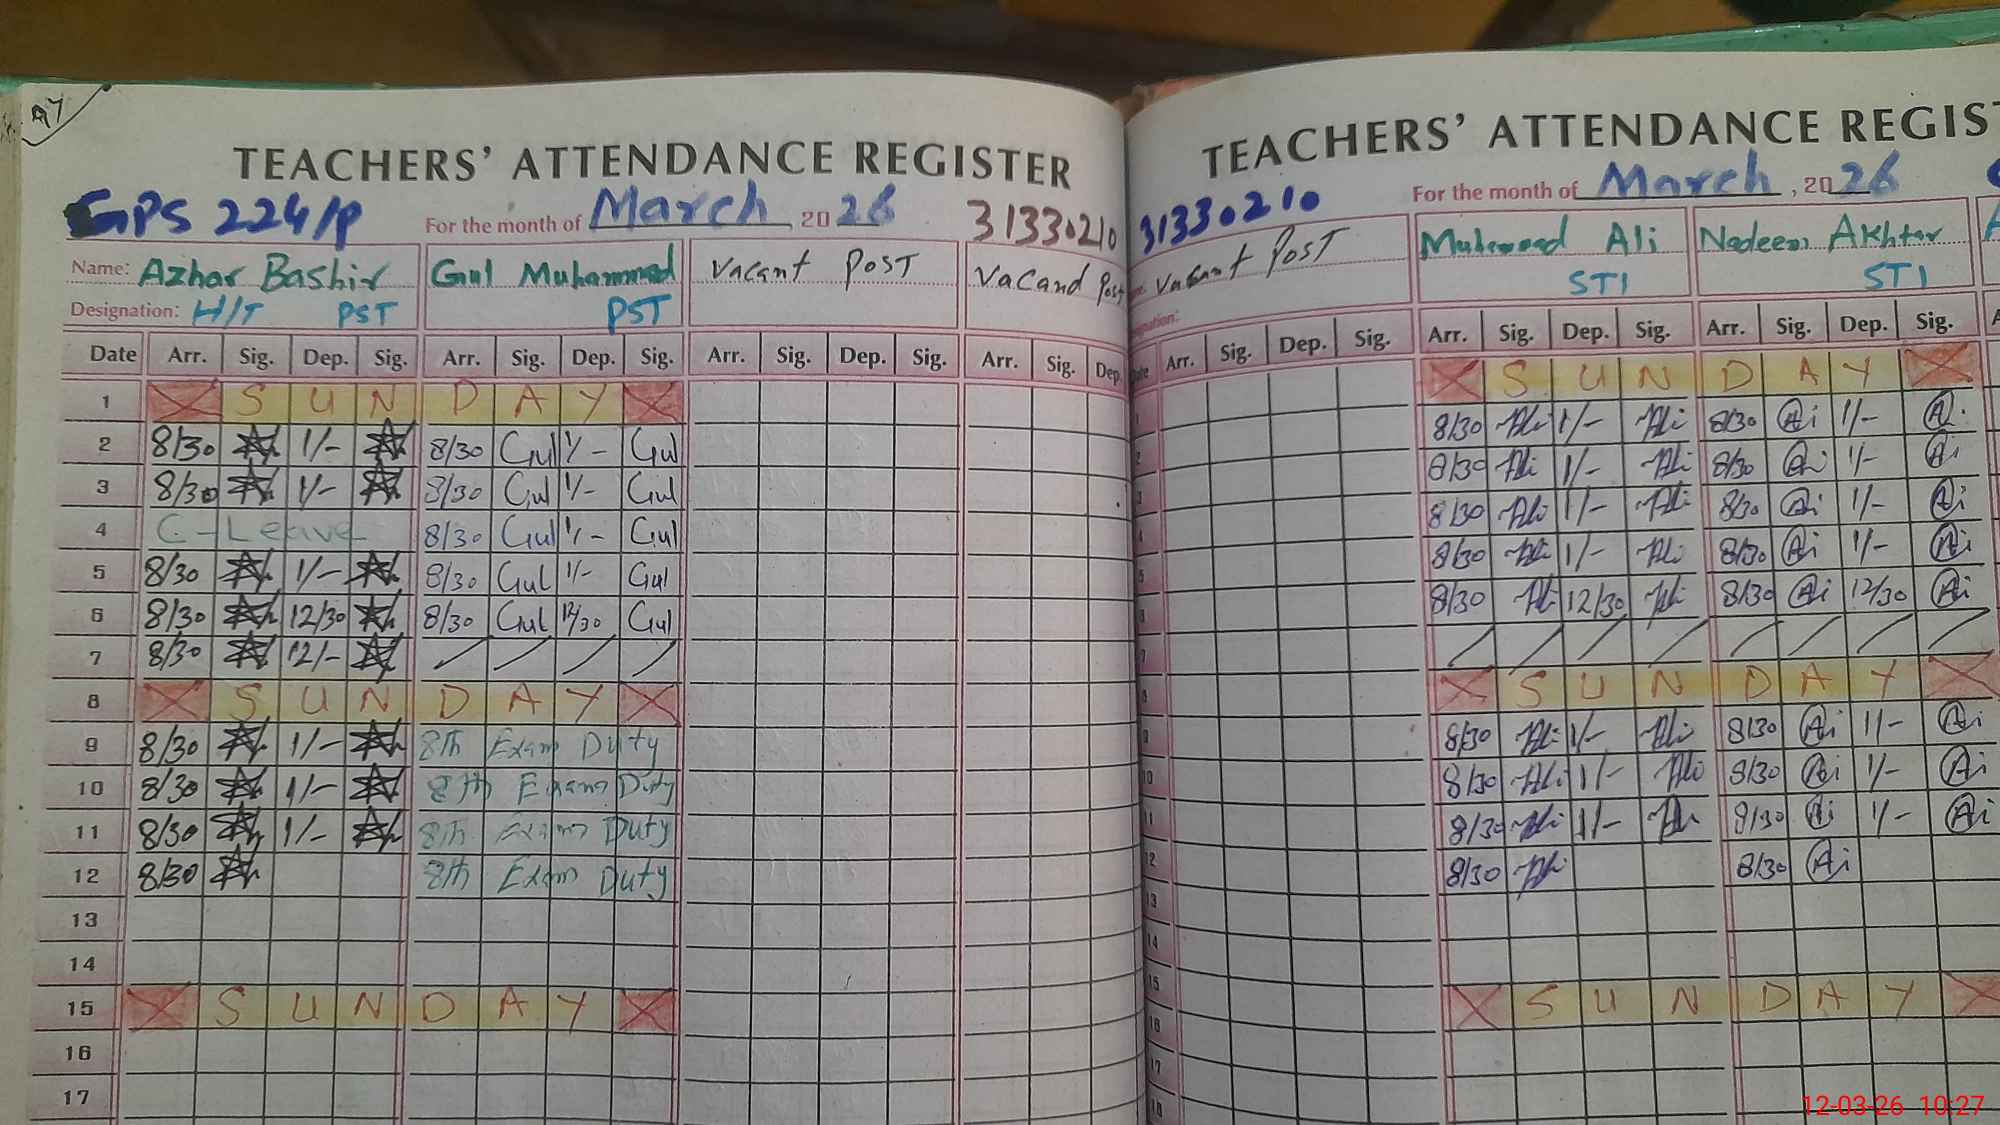 TEACHERS' ATTENDANCE REGISTER
GPS 224/P For the month of March, 2026 31330210
Name: Azhar Bashir Gul Muhammad Vacant Post Vacand Post
Designation: H/T PST PST
Date Arr. Sig. Dep. Sig. Arr. Sig. Dep. Sig. Arr. Sig. Dep. Sig. Arr. Sig. Dep.
1 S U N D A Y
2 8/30 1/- 8/30 Gul 1/- Gul
3 8/30 1/- 8/30 Gul 1/- Gul
4 C-Leave 8/30 Gul 1/- Gul
5 8/30 1/- 8/30 Gul 1/- Gul
6 8/30 12/30 8/30 Gul 12/30 Gul
7 8/30 12/-
8 S U N D A Y
9 8/30 1/- 8th Exam Duty
10 8/30 1/- 8th Exam Duty
11 8/30 1/- 8th Exam Duty
12 8/30 8th Exam Duty
13
14
15 S U N D A Y
16
17
TEACHERS' ATTENDANCE REGIS
31330210 For the month of March, 2026
Vacant Post Muhammad Ali Nadeem Akhtar
STI STI
Arr. Sig. Dep. Sig. Arr. Sig. Dep. Sig. Arr. Sig. Dep. Sig.
S U N D A Y
8/30 Ali 1/- Ali 8/30 Ai 1/- Ai
8/30 Ali 1/- Ali 8/30 Ai 1/- Ai
8/30 Ali 1/- Ali 8/30 Ai 1/- Ai
8/30 Ali 1/- Ali 8/30 Ai 1/- Ai
8/30 Ali 12/30 Ali 8/30 Ai 12/30 Ai
S U N D A Y
9 8/30 Ali 1/- Ali 8/30 Ai 1/- Ai
10 8/30 Ali 1/- Ali 8/30 Ai 1/- Ai
11 8/30 Ali 1/- Ali 8/30 Ai 1/- Ai
12 8/30 Ali 8/30 Ai
13
14
15 S U N D A Y
16
17
18
12-03-26 10:27